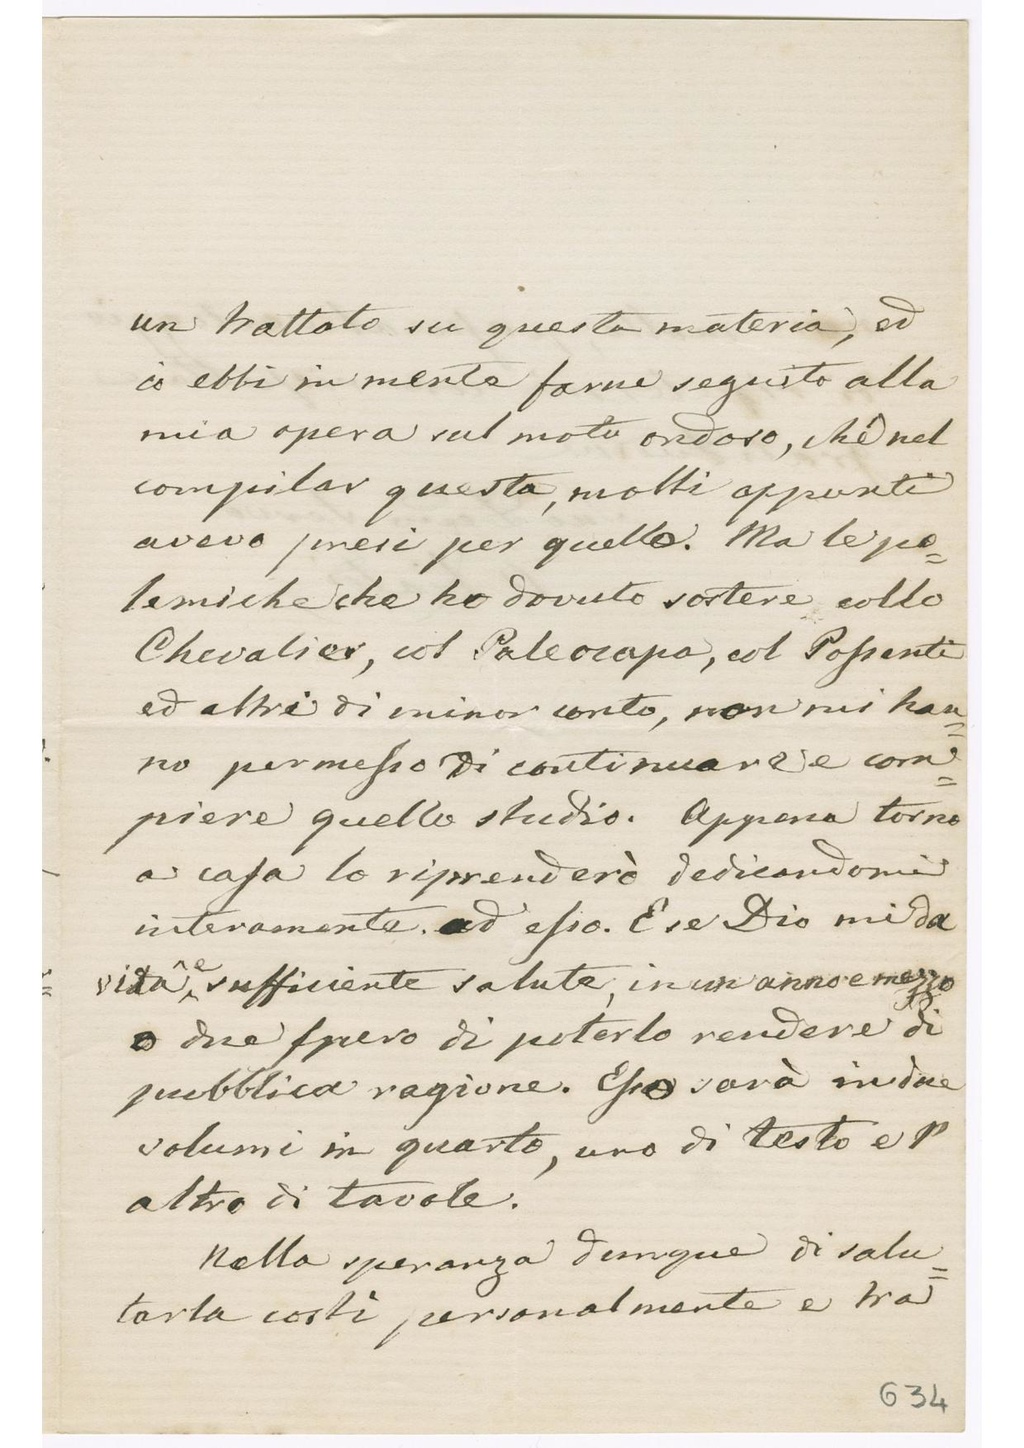 un trattato su questa materia, ed
io ebbi in mente farne seguito alla
mia opera sul moto ondoso, chè nel
compilar questa, molti appunti
avevo presi per quello. Ma le po=
lemiche che ho dovuto sostere collo
Chevalier, col Paleocapa, col Possenti
ed altri di minor conto, non mi han=
no permesso di continuare e com=
piere quello studio. Appena torno
a casa lo riprenderò dedicandomi
interamente ad esso. E se Dio mi da
vita, e sufficiente salute, in un anno e mezzo
o due spero di poterlo rendere di
pubblica ragione. Esso sarà in due
volumi in quarto, uno di testo e l'
altro di tavole.
Nella speranza dunque di salu=
tarla costì personalmente e tra
634